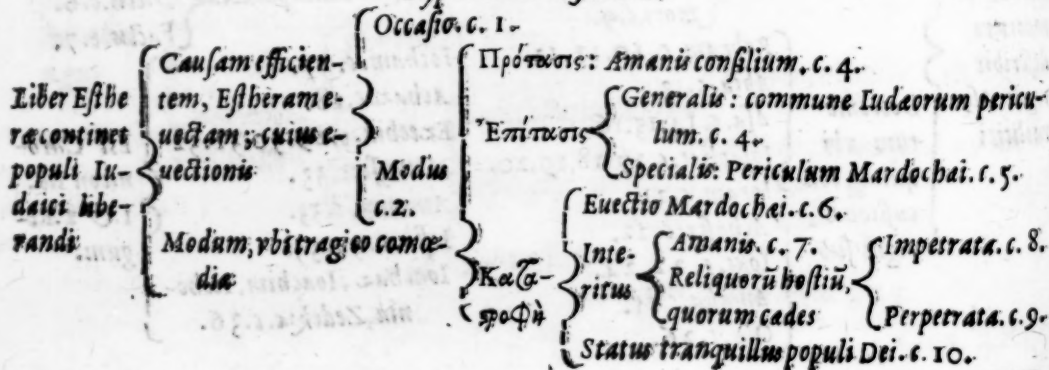 Occasio. c. 1.
Liber Esthe
ræ continet
populi Iu-
daici libe-
randi
Causam efficien-
tem, Estheram e-
uectam; cuius e-
uectionis
Modus
c.2.
Modum, vbi tragico comœ-
diæ
Πρότασις: Amanis consilium. c. 4.
Ἐπίτασις
Generalis: commune Iudæorum pericu-
lum. c. 4.
Specialis: Periculum Mardochai. c. 5.
Κατα-
ςροφὴ
Euectio Mardochai. c. 6.
Inte-
ritus
Amanis. c. 7.
Reliquorũ hostiũ,
quorum cædes
Impetrata. c. 8.
Perpetrata. c. 9.
Status tranquillus populi Dei. c. 10.